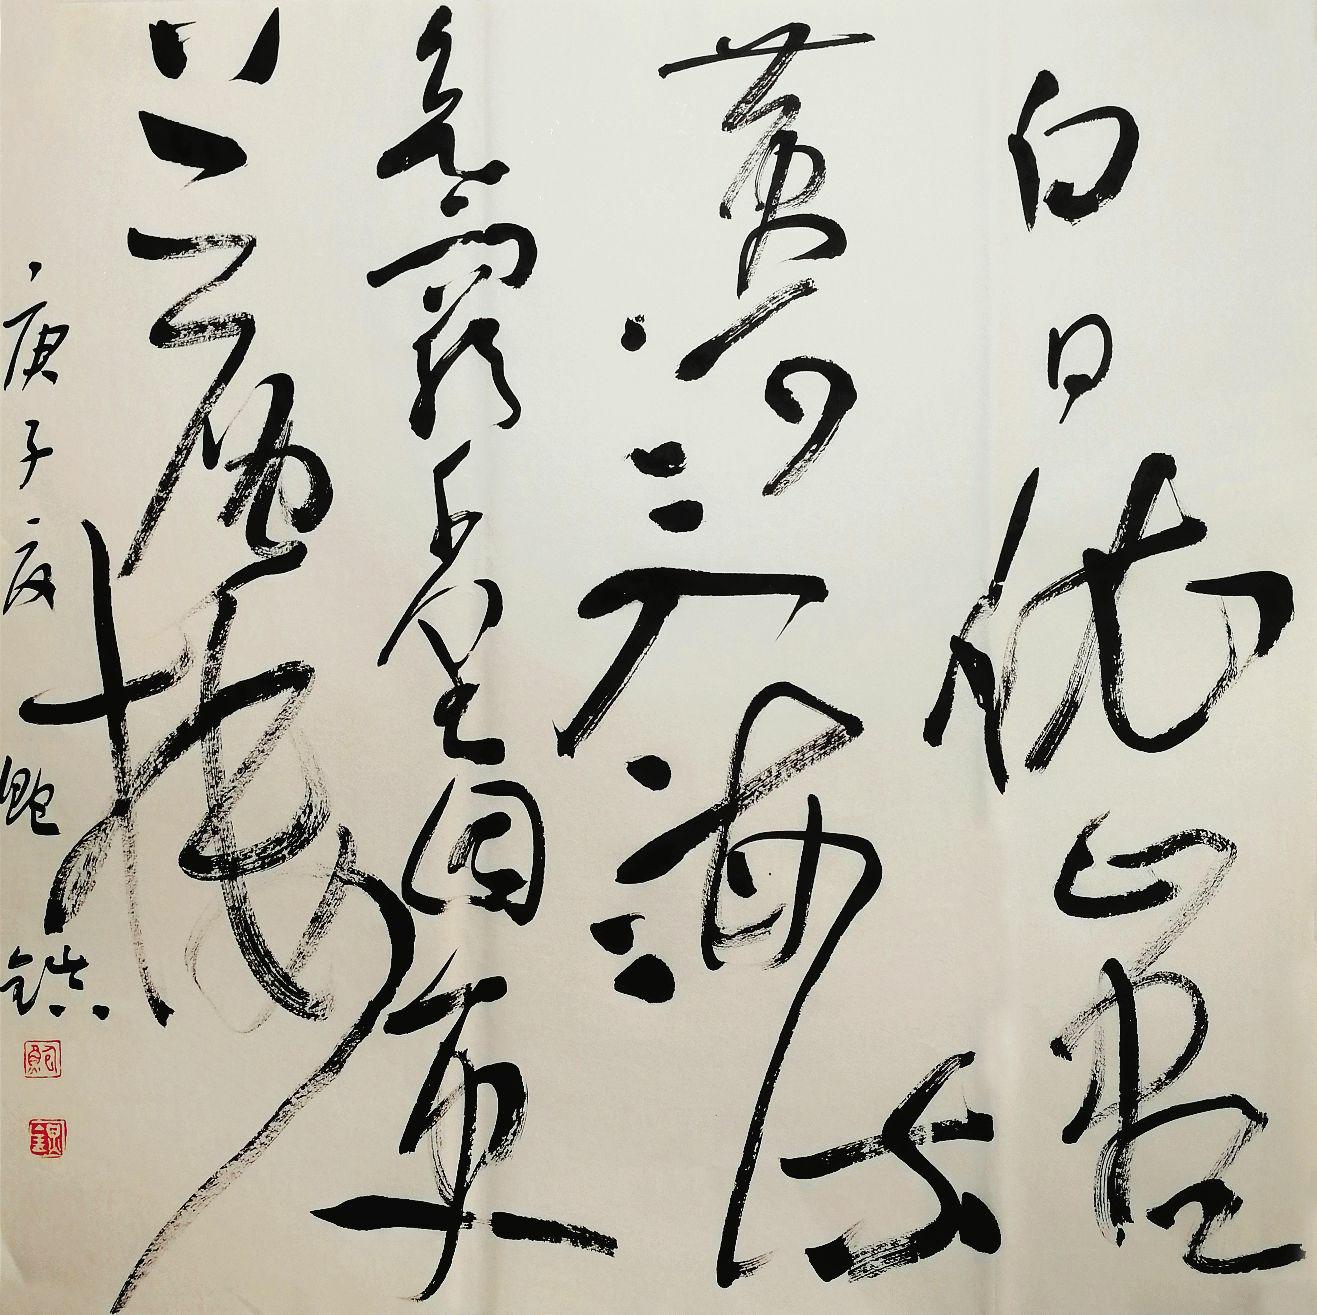 白日依山尽
黄河入海流
欲穷千里目更
上一层楼
庚子夏 鲍锦